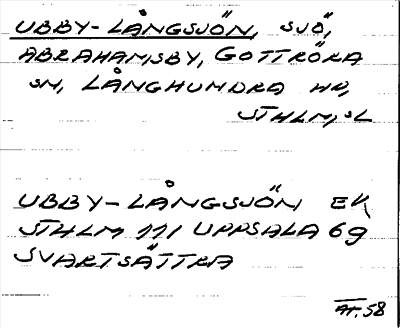 UBBY-LÅNGSJÖN, SJÖ,
ABRAHAMSBY, GOTTRÖRA
SN, LÅNGHUNDRA HD,
STHLM, SL
UBBY-LÅNGSJÖN EK
STHLM 111 UPPSALA 69
SVARTSÄTTRA
AT. 58